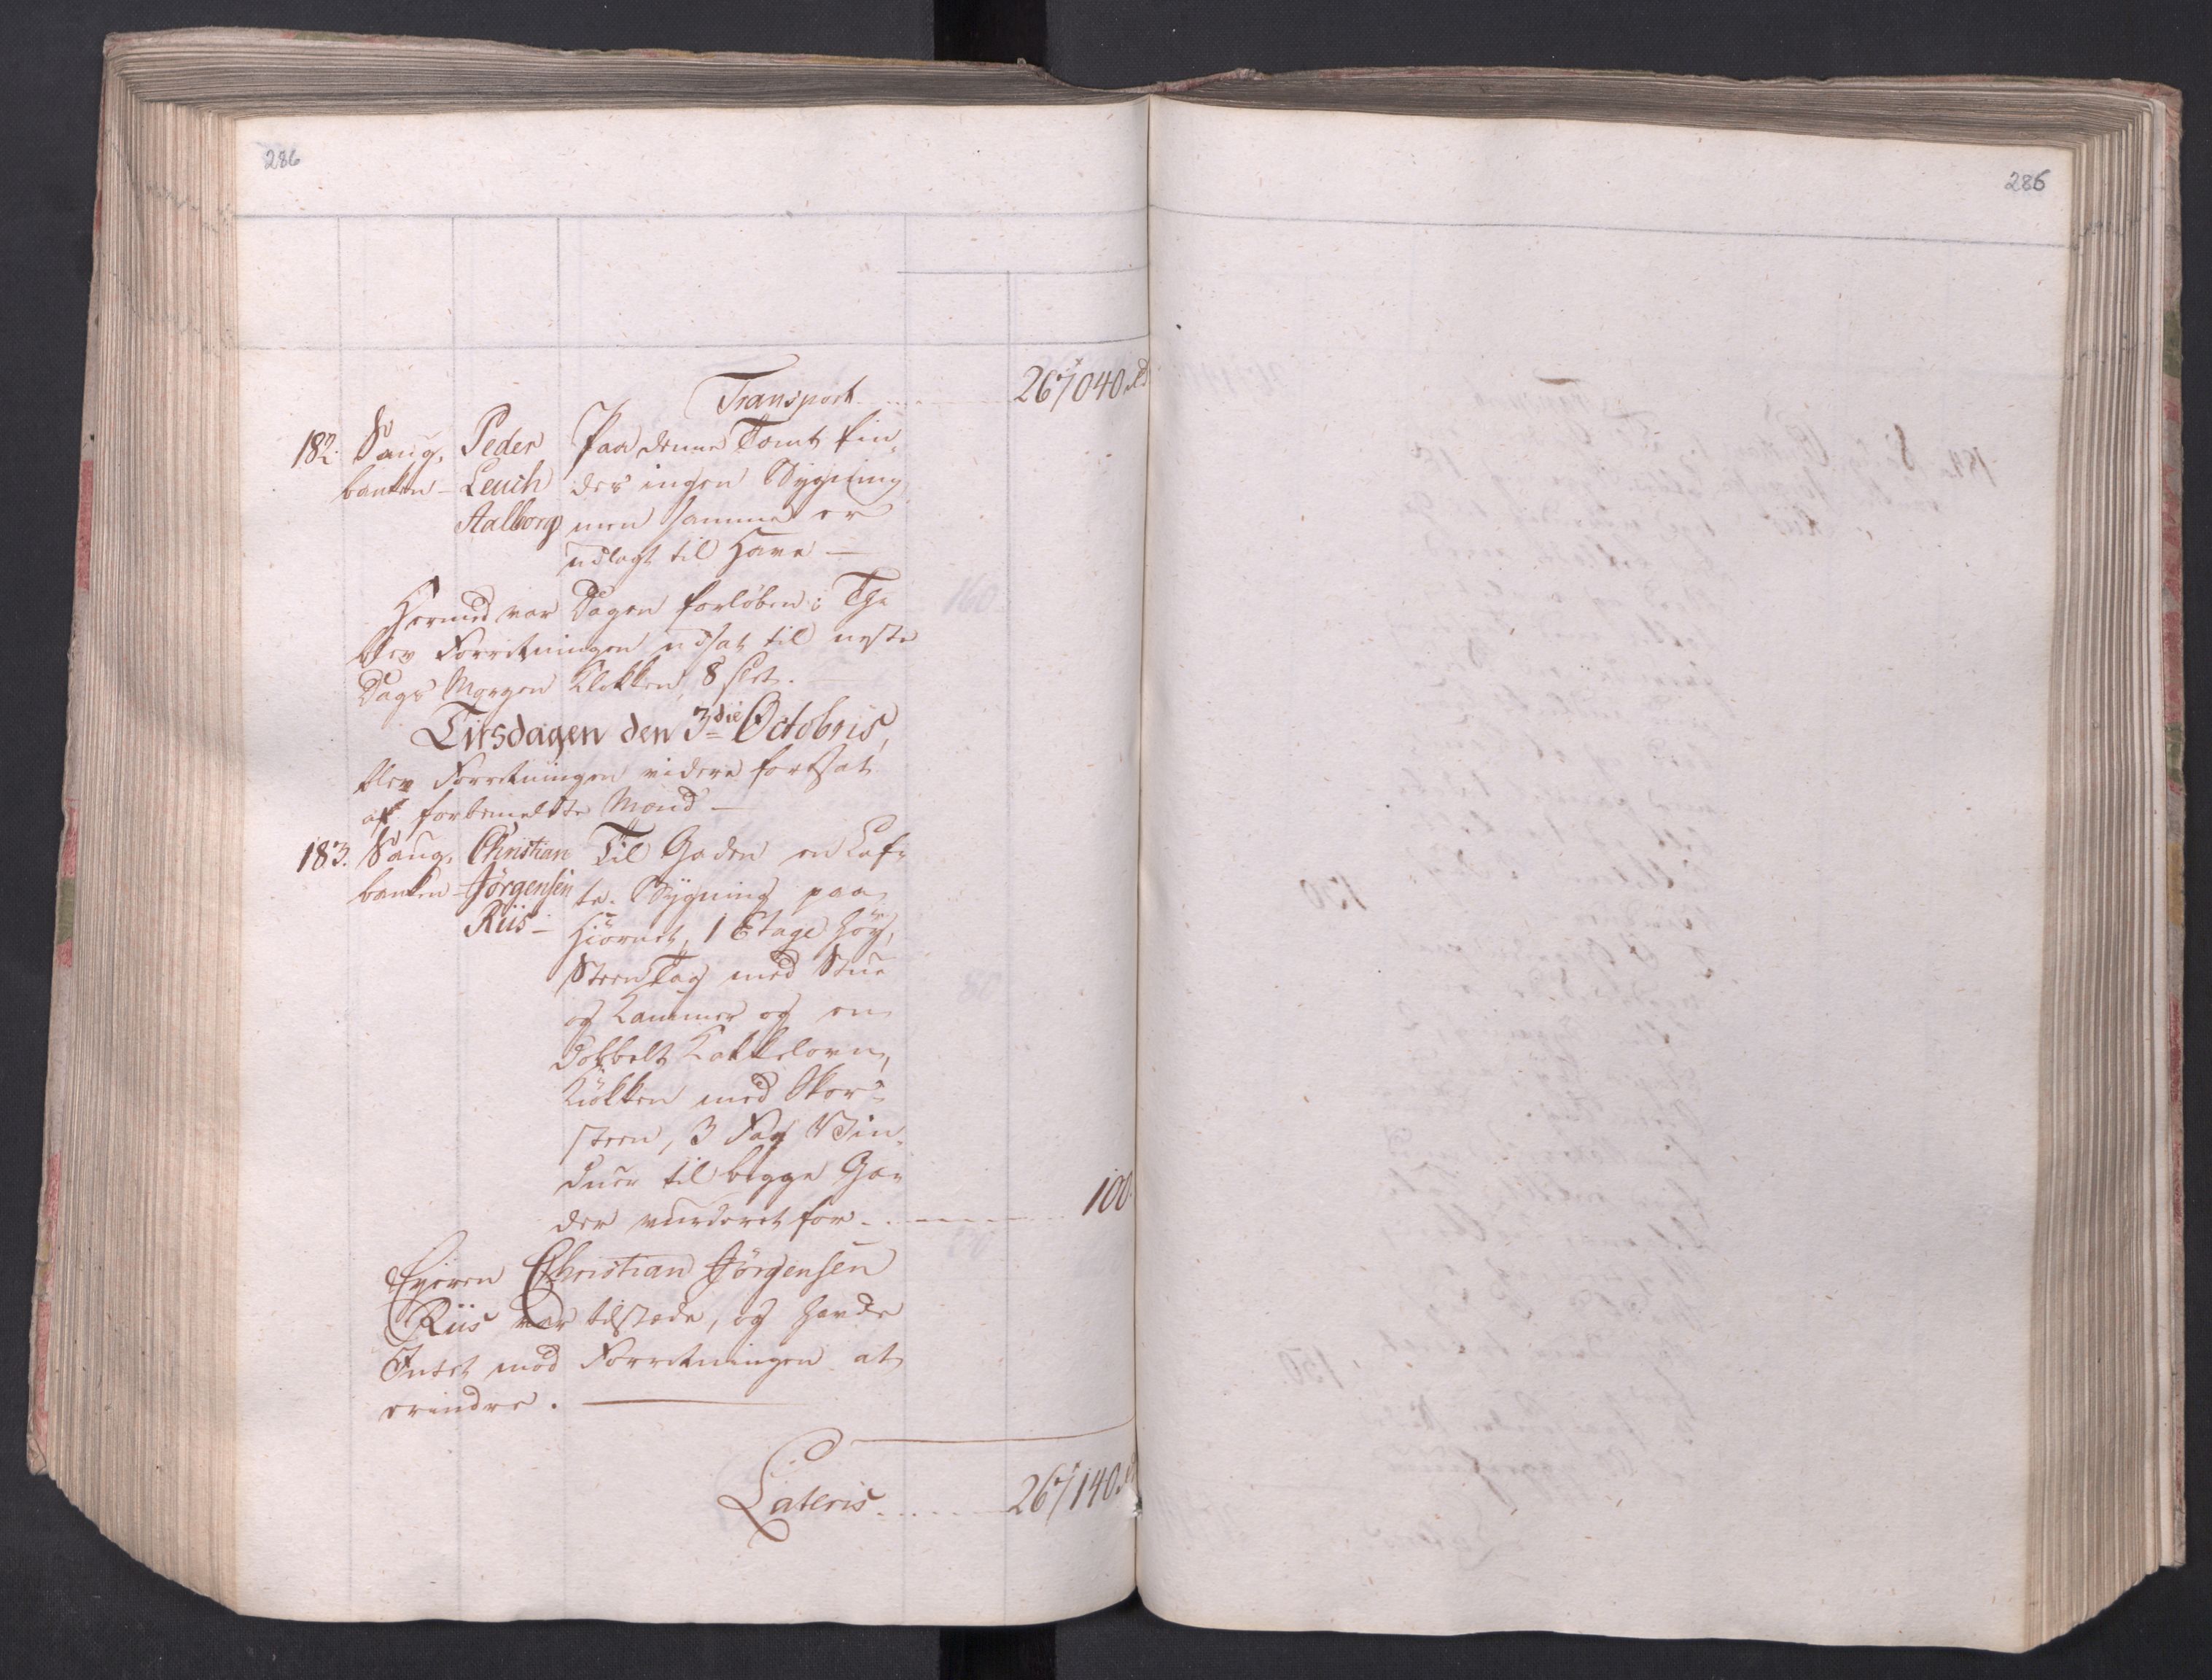 286
286
Transport . . . . 267040 rd
182. Saug- Peder Paa denne Tomt fin-
banken - Leuch des ingen Bygning
Aalborg men samme er
udlagt til Have —
Hermed var Dagen forløben; Thi
blev Forretningen udsat til neste
Dags Morgen Klokken 8 slet.
Tirsdagen den 3die Octobris,
blev Forretningen videre fortsat
af forbemeldte Mænd —
183. Saug- Christian Til Gaden en Laf-
banken - Jörgensen te Bygning paa
Riis - Hiörnet, 1 Etage höy,
Steen Tag med Stue
og Kammer og en
dobbelt Kakkelovn,
Kiökken med Skor-
steen, 3 Fag Vin-
duer til begge Ga-
der vurderet for . . . . 100
Eyeren Christian Jörgensen
Riis var tilstæde, og havde
Intet mod Forretningen at
erindre.
Lateris . . . . 267140 rd